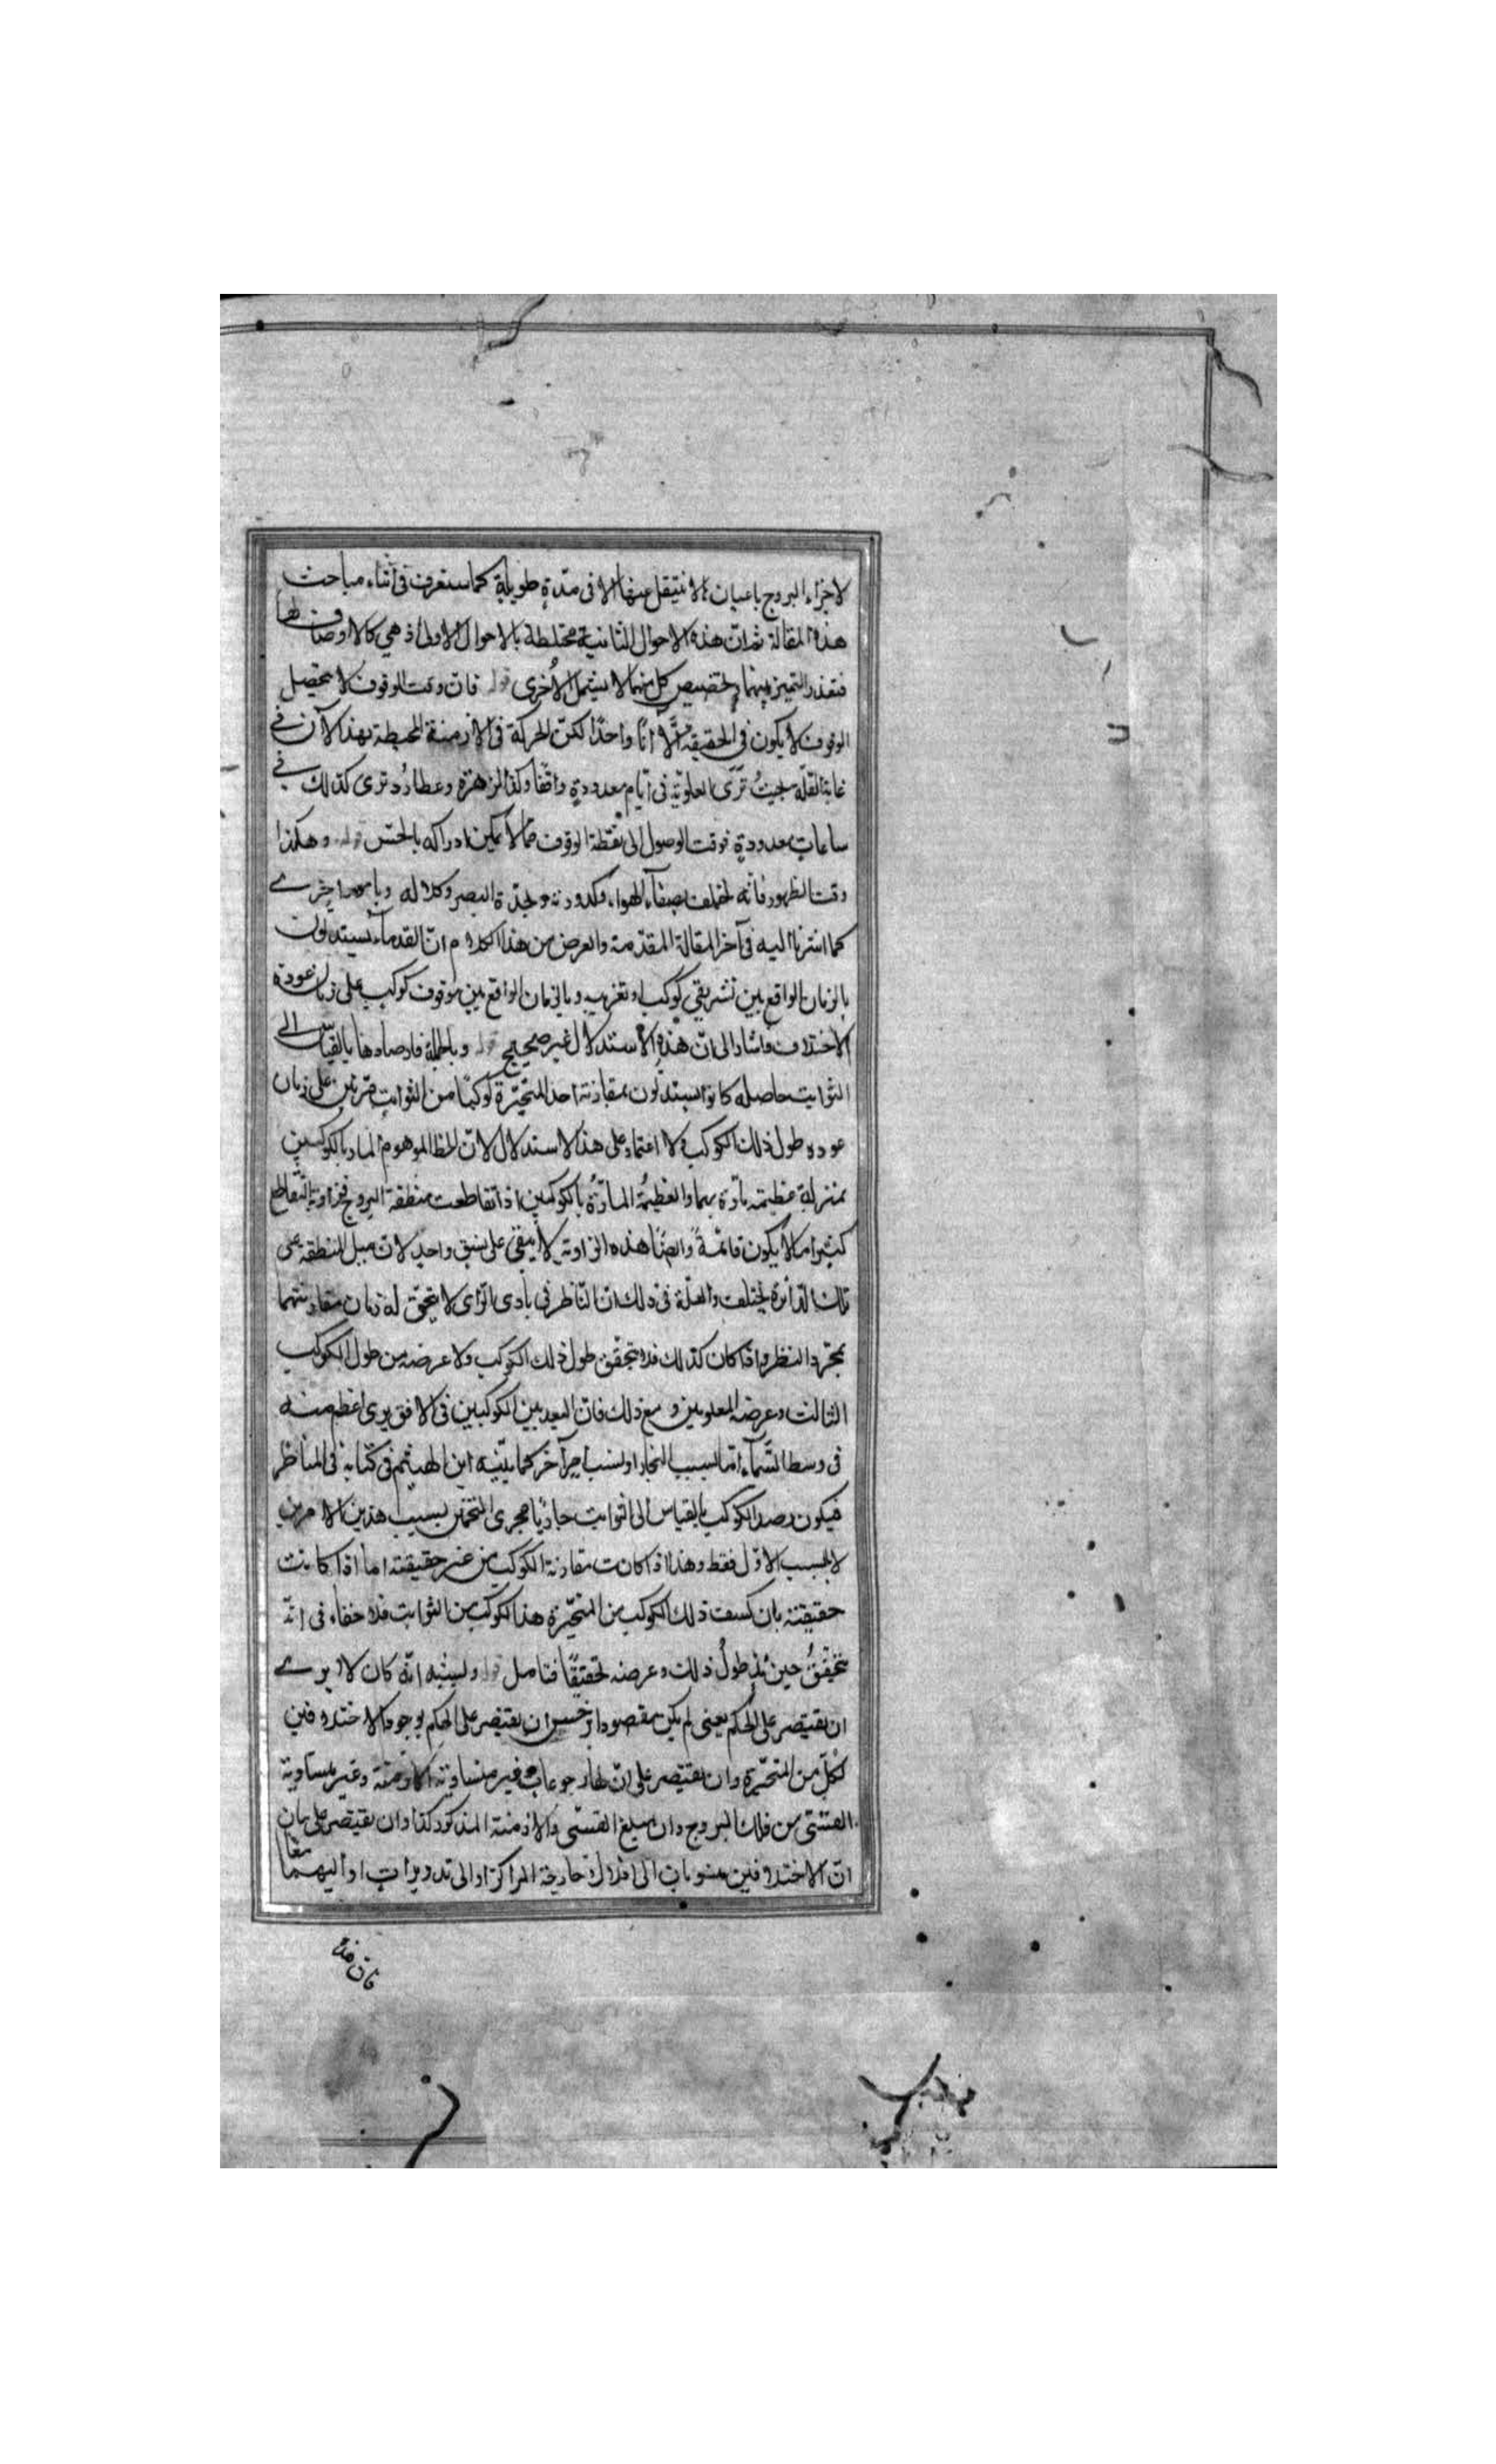 لاجزاء البروج باعيانها لا ننتقل عنها الا فى مدّة طويلة كما ستعرف فى اثناء مباحث
هذه المقالة ثم ان هذه الاحوال الثانية مختلطة بالاحوال الاولى اذ هي كالاوصاف لها
فتعذر التميز بينهما وتخصيص كل منهما لا يشتمل الأخرى قوله فان وقت الوقوف لا يتحصل
الوقوف لا يكون فى الحقيقة الّا انًا واحدًا لكنّ الحركة فى الازمنة المحيطة بهذا الآن فے
غاية القلّة بحيث ترى العلويّة فى ايّام معدودة واقفا وكذا الزهرة وعطارُد ترى كذلك فے
ساعات معدودة فوقت الوصول الى نقطة الوقوف مما لا يمكن ادراكه بالحسّ قوله وهكذا
وقت الظهور فانه يختلف بصفآء الهواء وكدورته وبحدّة البصر وكلاله وبامور اخرے
كما اشرنا اليه فى آخر المقالة المتقدمة والغرض من هذا الكلام انّ القدمآء يستدلون
بالزمان الواقع بين تشريقي كوكب او تغريبيه وبالزمان الواقع بين وقوف كوكب على زمان عودة
الاختلاف فاشار الى انّ هذه الاستدلال غير صحيح قوله وبالجملة فارصادها بالقياس الى
الثوابت حاصله كانوا يستدلون بمقارنة احد المتحيّرة كوكبًا من الثوابت مرّتين على زمان
عودة طول ذلك الكوكب ولا اعتماد على هذا الاستدلال لانّ الخط الموهوم المار بالكوكبين
بمنزلة عظيمة مارّة بهما والعظيمُة المارّةُ بالكوكبين اذا تقاطعت منطقة البروج فزاوية التقاطع
كثيرا ما لا يكون قائمةً وايضًا هذه الزاوية لا يبقى على نسق واحد لان ميل المنطقة عن
تلك الدائرة يختلف والعلّة فى ذلك ان الناظر فى بادى الراى لا يتحقق له زمان مقارنتهما
بمجرّد النظر واذا كان كذلك فلا يتحقق طول ذلك الكوكب ولا عرضه من طول الكوكب
الثالث وعرضه المعلومين ومع ذلك فان البعد بين الكوكبين فى الافق يرى اعظم منه
فى وسط السّمآء امّا لسبب البخار او لسبب اخر كما بيّنه ابن الهيثم فى كتابه فى المناظر
فيكون رصد الكوكب بالقياس الى الثوابت جاريًا مجرى التخمين بسبب هذين الامرين
لا بحسب الاوّل فقط وهذا اذا كانت مقارنة الكوكب من غير حقيقته اما اذا كانت
حقيقته بان كسف ذلك الكوكب من المتحيّرة هذا الكوكب من الثوابت فلا خفاء فى انّه
يتحققُ حينئذ طولُ ذلك وعرضه تحقيقًا فتامل قوله وليشبه انّه كان لا يرے
ان يقتصر على الحكم يعنى لم يكن مقصود ابرخس ان يقتصر على الحكم بوجود الاختلافين
لكلّ من المتحيّرة وان يقتصر على انّ لها رجوعات غير متساوية الازمنة وغير متساوية
القسّى من فلك البروج وان مبلغ القسّى والازمنة المذكور كذا وان يقتصر على بيان
انّ الاختلافين منسوبان الى افلاك خارجة المراكز او الى تدويرات او اليهما معا